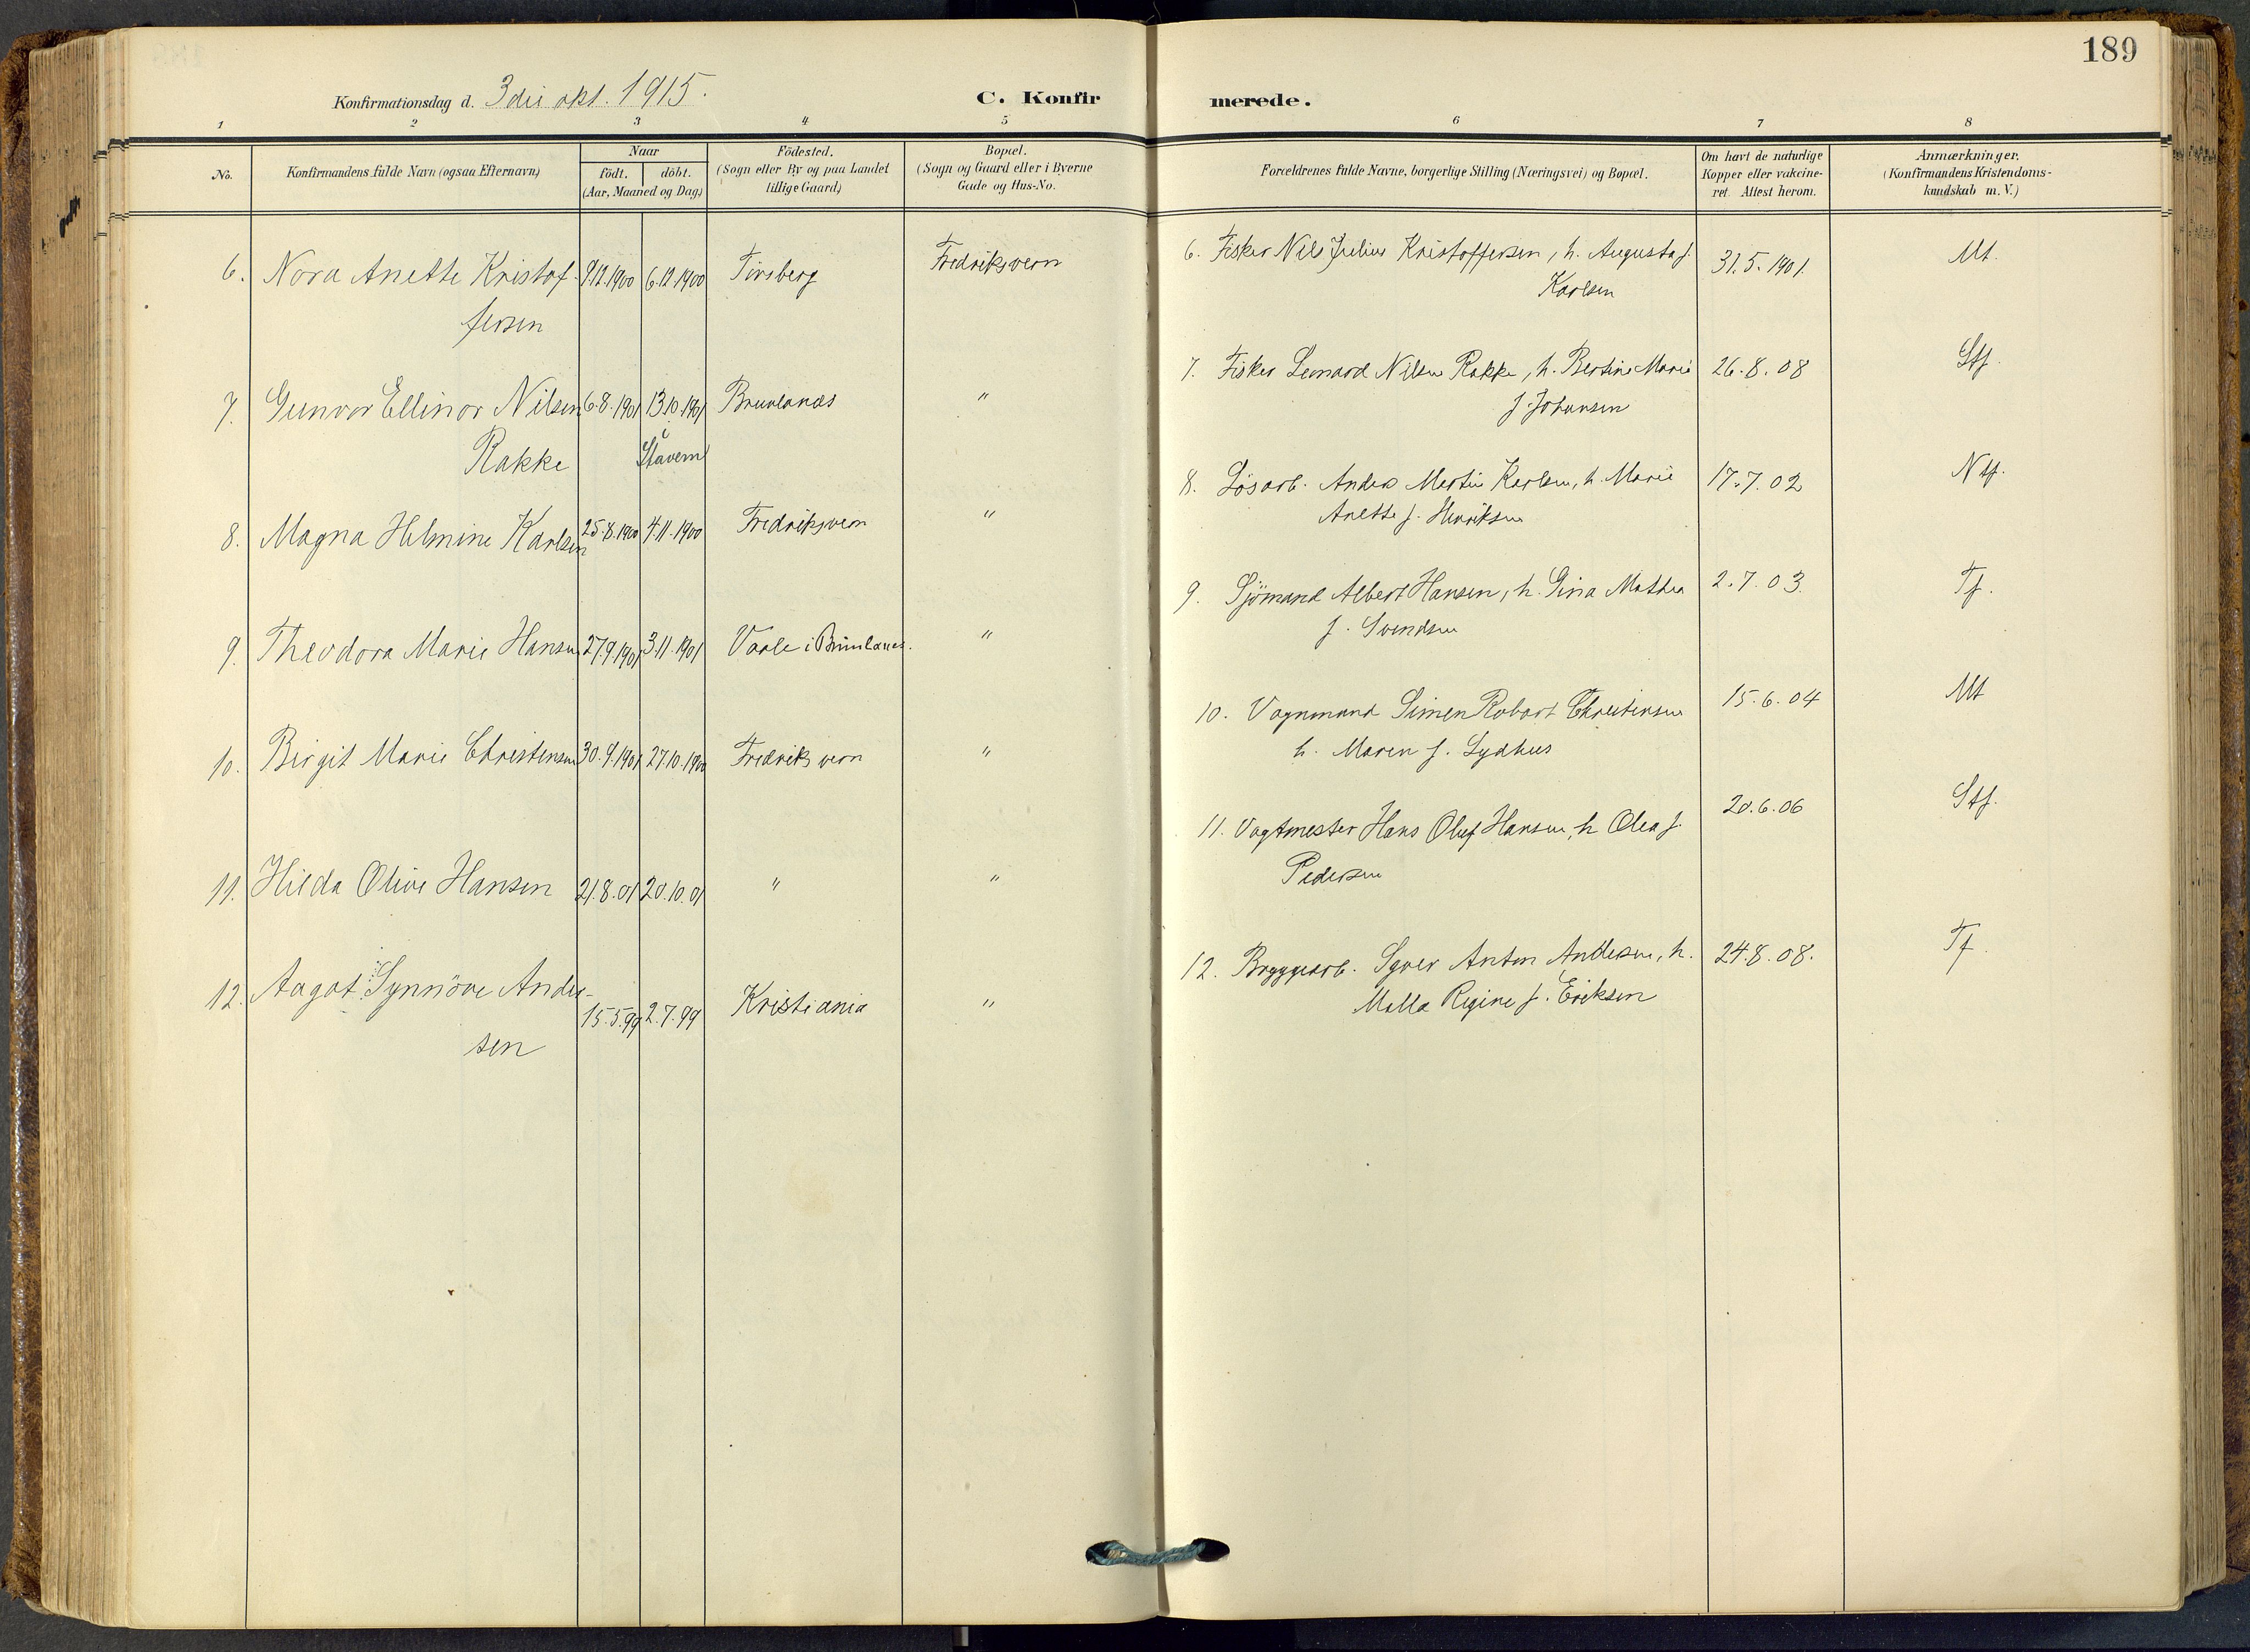 189
Konfirmationsdag d. 3die okt. 1915.
C. Konfir
merede.
1 2 3 4 5 6 7 8
No.
Konfirmandens fulde Navn (ogsaa Efternavn)
Naar
födt. döbt.
(Aar, Maaned og Dag)
Födested.
(Sogn eller By og paa Landet
tillige Gaard)
Bopæl.
(Sogn og Gaard eller i Byerne
Gade og Hus-No.
Forældrenes fulde Navne, borgerlige Stilling (Næringsvei) og Bopæl.
Om havt de naturlige
Kopper eller vakcine-
ret. Attest herom.
Anmærkninger.
(Konfirmandens Kristendoms-
kundskab m. V.)
6. Nora Anette Kristof- 9.12.1900 6.12.1900 Fredriksvern
fersen
6. Fisker Nils Julius Kristoffersen, h. Augusta f. 31.5.1901. Mt.
Karlsen
7. Gunvor Ellinor Nilsen 6.8.1901 13.10.1901 Brunlanes "
Rakke i
Stavern
7. Fisker Leonard Nilsen Rakke, h. Bertine Marie 26.8.08 Stf.
f. Johansen
8. Magna Helmine Karlsen 25.8.1900 4.11.1900 Fredriksvern "
8. Lösarb. Anders Martin Karlsen, h. Marie 17.7.02 Ntf.
Anette f. Henriksen
9. Theodora Marie Hansen 27.9.1901 3.11.1901 Vaale i Brunlanes. "
9. Sjömand Albert Hansen, h. Gina Mathea 2.7.03. Tf.
f. Svendsen
10. Birgit Marie Christensen 30.9.1901 27.10.1900 Fredriksvern "
10. Vognmand Simen Robart Christensen 15.6.04 Mt
h. Maren f. Lydhus
11. Hilda Olive Hansen 21.8.01 20.10.01 " "
11. Vagtmester Hans Oluf Hansen, h Olea f. 20.6.06 Stf.
Pedersen
12. Aagot Synnöve Ander- 15.5.99 2.7.99 Kristiania "
sen
12. Bryggearb. Anton Andersen, h. 24.8.08. Tf.
Malla Regine f. Eriksen